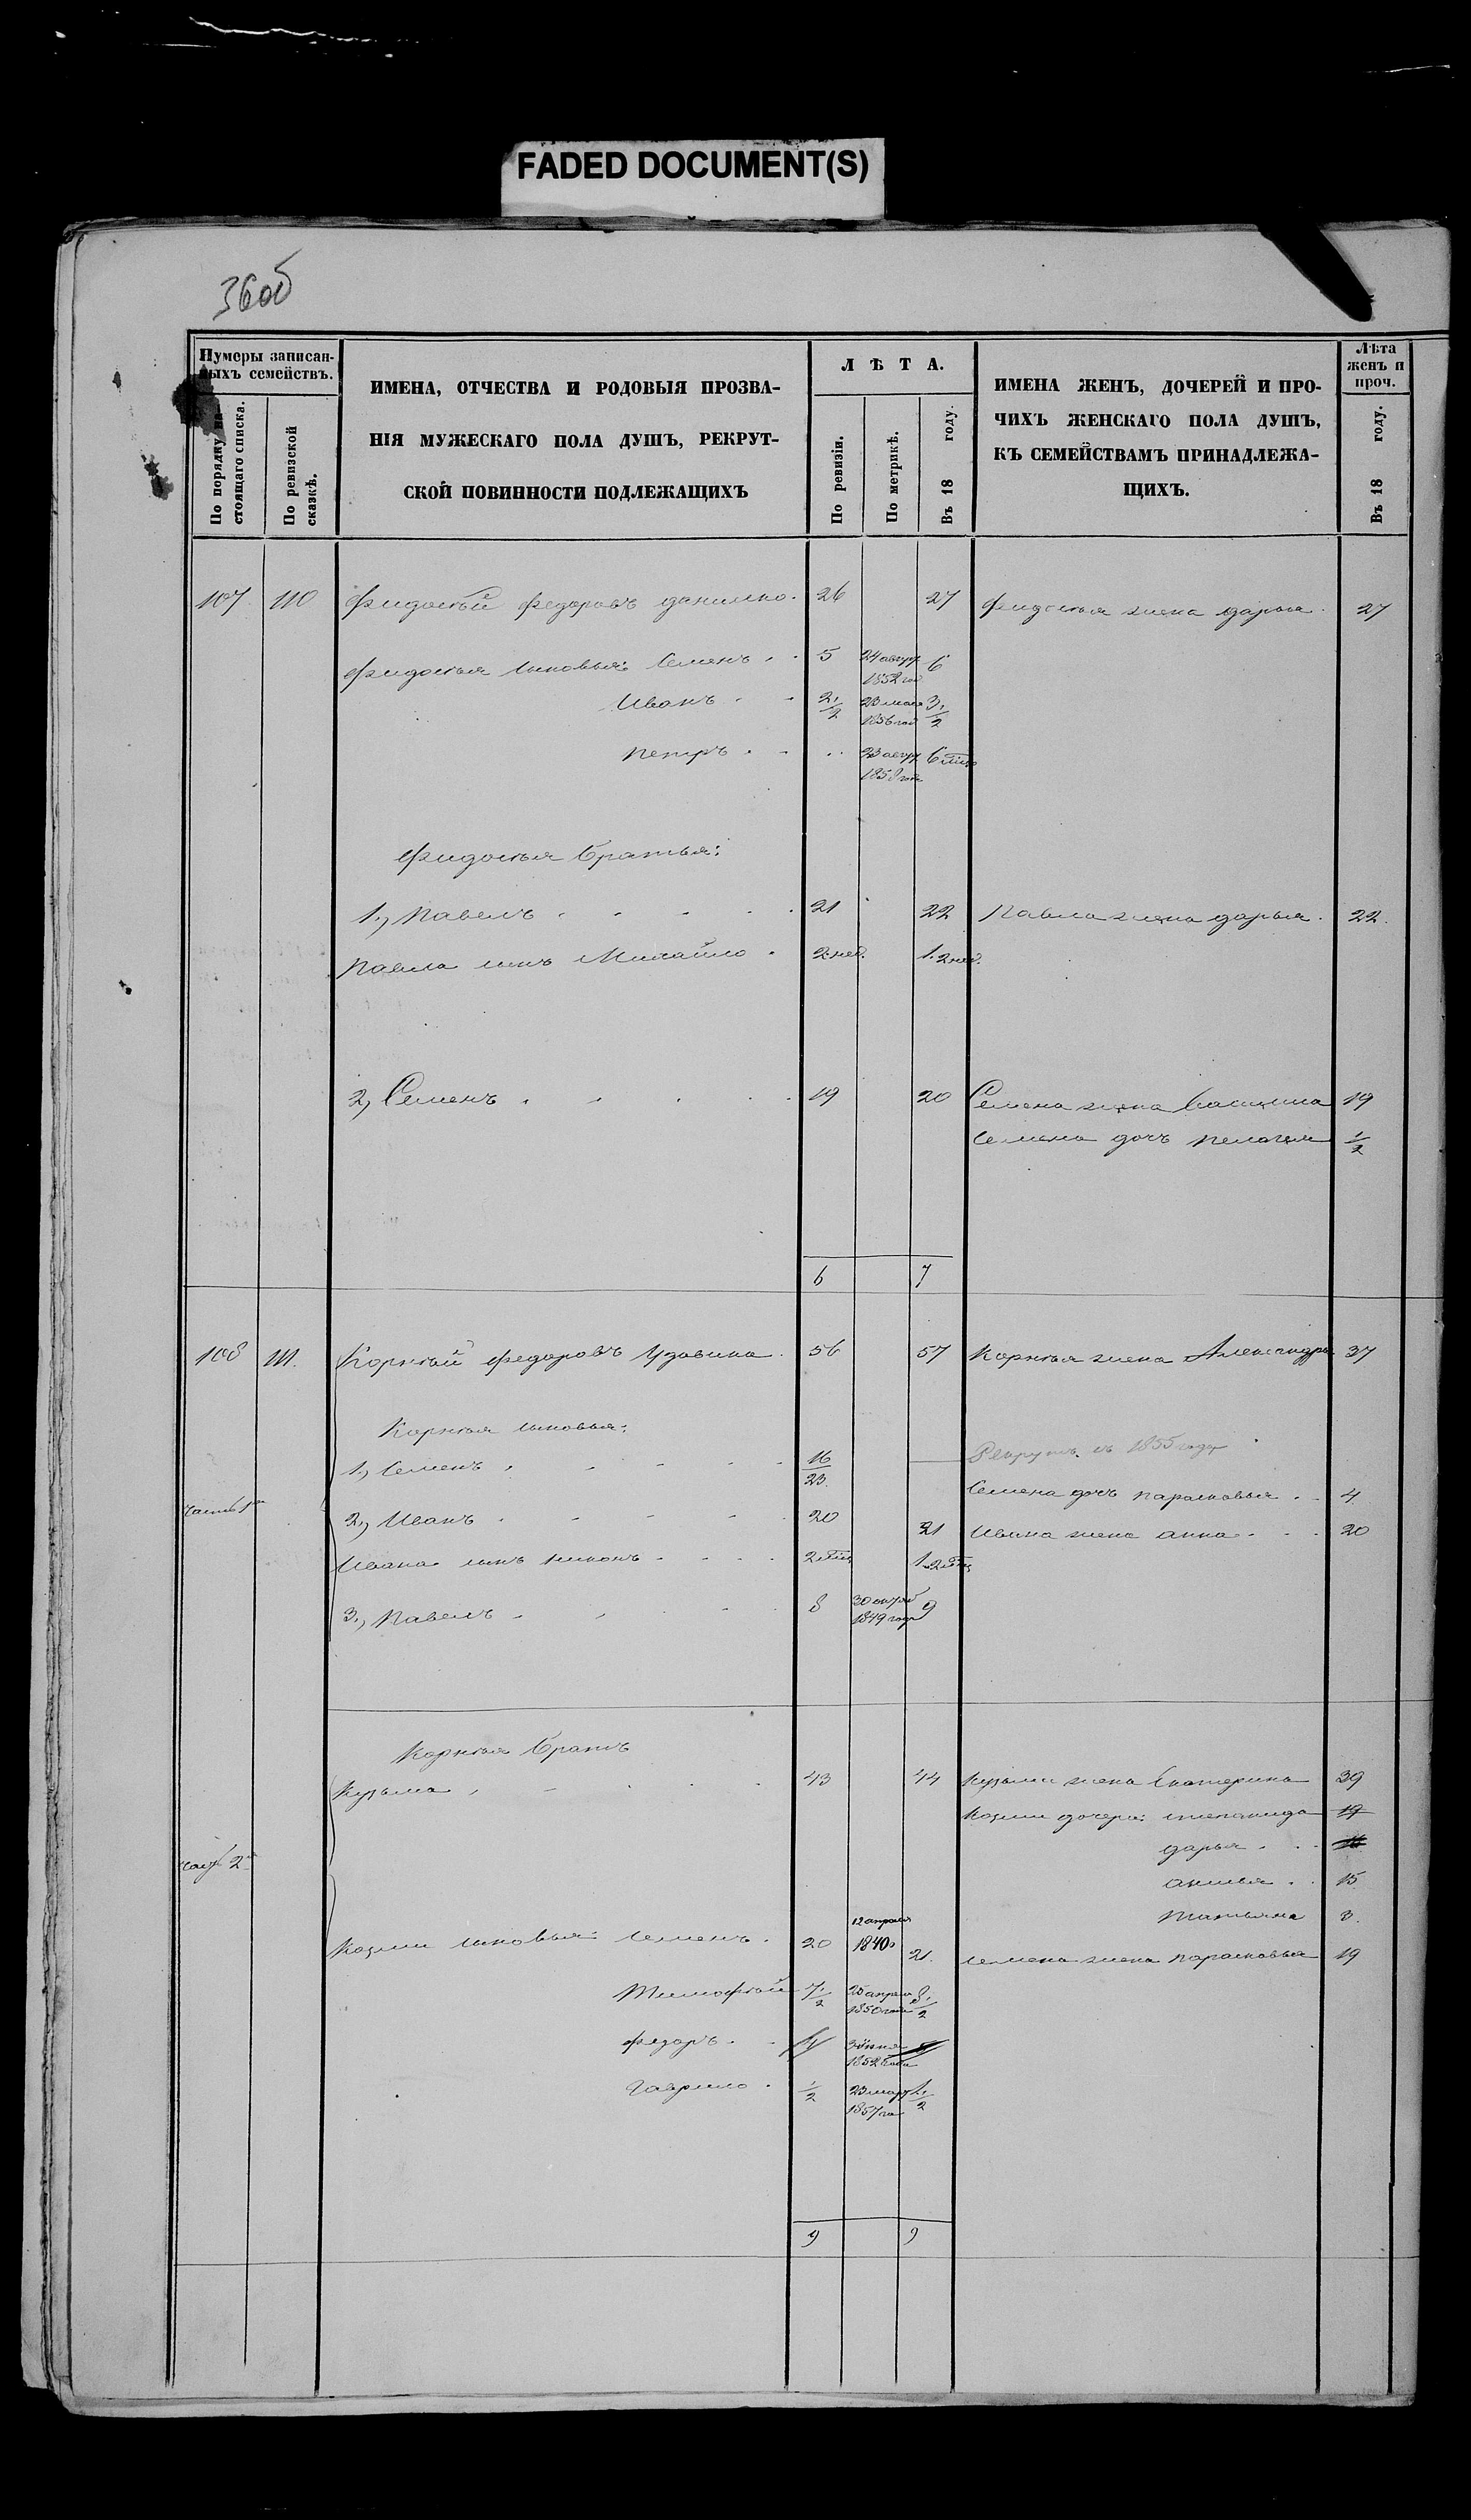 FADED DOCUMENT(S)
36об
Нумеры записан-
ныхъ семействъ.
По порядку на-
стоящаго списка.
По ревизской
сказкѣ.
ИМЕНА, ОТЧЕСТВА И РОДОВЫЯ ПРОЗВА-
НІЯ МУЖЕСКАГО ПОЛА ДУШЪ, РЕКРУТ-
СКОЙ ПОВИННОСТИ ПОДЛЕЖАЩИХЪ
ЛѢТА.
По ревизіи.
По метрикѣ.
Въ 18 году.
ИМЕНА ЖЕНЪ, ДОЧЕРЕЙ И ПРО-
ЧИХЪ ЖЕНСКАГО ПОЛА ДУШЪ,
КЪ СЕМЕЙСТВАМЪ ПРИНАДЛЕЖА-
ЩИХЪ.
Лѣта
женъ и
проч.
Въ 18 году.
107 110 Фидосѣй Федоровъ Данилко 26 27 Фидосѣя жена Дарья 27
Фидосѣя сыновья: Семенъ 5 24 авгус 1852 год 6
Иванъ 2 1/2 23 мая 1856 год 3 1/2
Петръ 23 авгус 1858 года 6 мѣс
Фидосѣя братья:
1, Павелъ 21 22 Павла жена Дарья 22
Павла сынъ Михайло 2 нед. 1. 2 нед.
2, Семенъ 19 20 Семена жена 19
Семена дочь Пелагея 1/2
6 7
108 111. Корнѣй Федоровъ Удовика 56 57 Корнѣя жена Александра 37
Корнѣя сыновья:
1, Семенъ 16/23 Рекрутъ въ 1855 году
Семена дочь Парасковья 4
часть 1я
2, Иванъ 20 21 Ивана жена Анна 20
Ивана сынъ Никонъ 2 мѣс 1. 2 мѣс
3, Павелъ 8 30 октяб 1849 года 9
Корнѣя братъ
Кузьма 43 44 Кузьмы жена Екатерина 39
Козми дочери: Степанида 17
Дарья
часть 2я
Акилья 15
Татьяна 3
Козми сыновья: Семенъ 20 12 апреля 1840 21. Семена жена Парасковья 19
Тимофѣй 7 1/2 25 апреля 1850 года 8 1/2
Федоръ 1852 года
Гаврило 1/2 23 март 1857 го 1 1/2
9 9